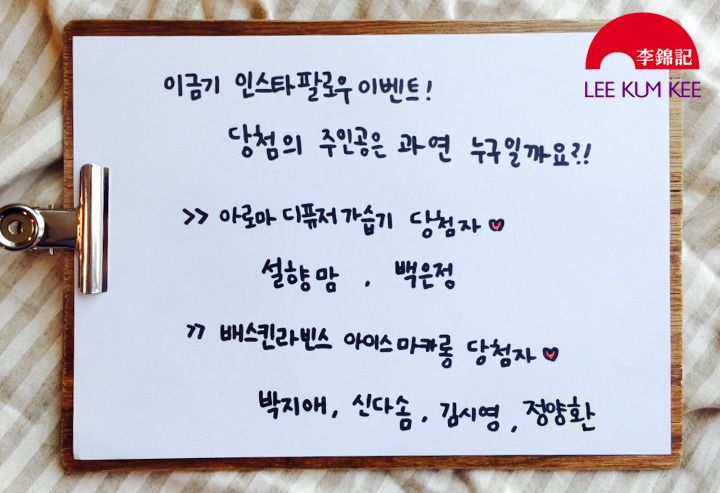 李錦記
LEE KUM KEE
이금기 인스타팔로우 이벤트!
당첨의 주인공은 과연 누구일까요?!
>> 아로마 디퓨저가습기 당첨자
설향맘, 백은정
>> 배스킨라빈스 아이스마카롱 당첨자
박지애, 신다솜, 김시영, 정양환